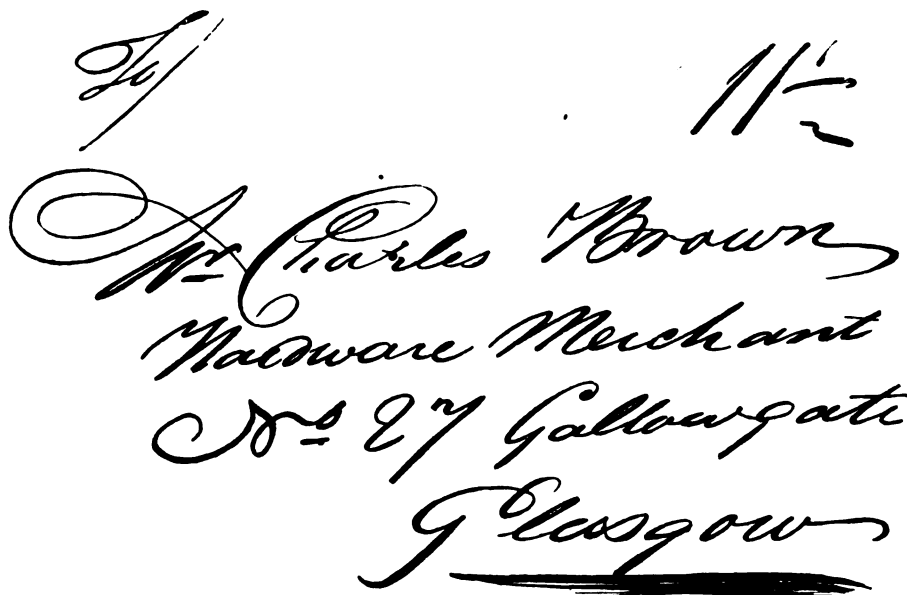 To/ 11½
Mr Charles Brown
Hardware Merchant
No 27 Gallowgate
Glasgow